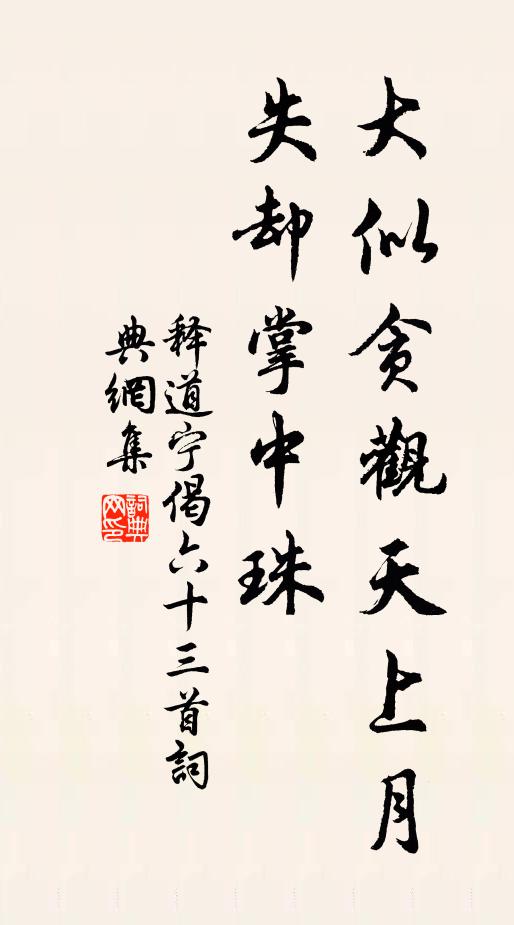 大似贪觀天上月
失却掌中珠
释道宁偈六十三首詞
典網集
詞典
网印